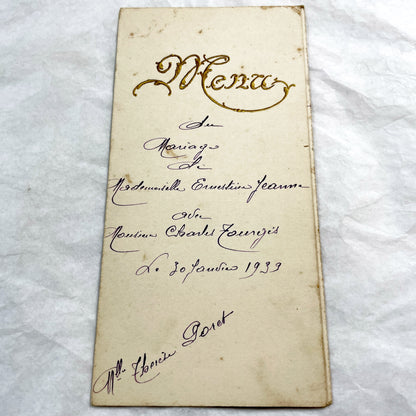 Menu
du
Mariage
de
Mademoiselle Ernestine Jeanne
avec
Monsieur Charles Tourgis
Le 30 Janvier 1939
Mlle Thérèse Doret